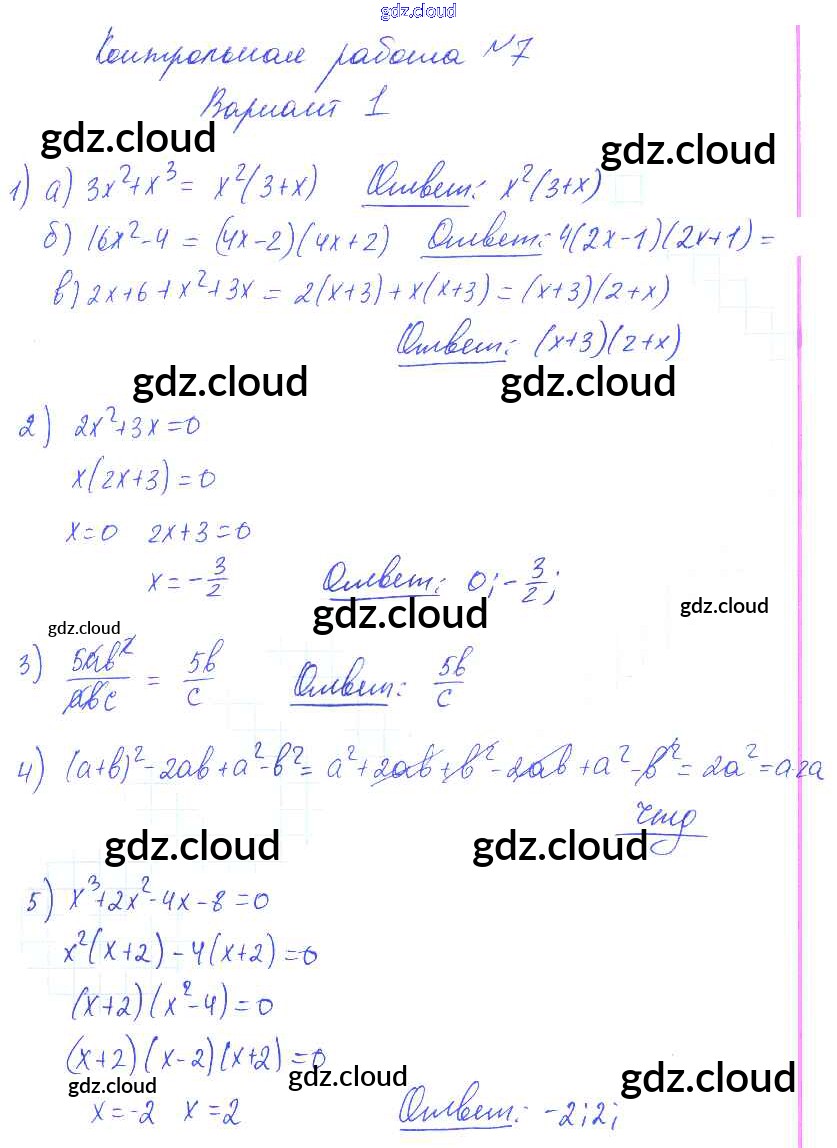 gdz.cloud
Контрольная работа №7
Вариант 1
gdz.cloud gdz.cloud
1) а) 3x²+x³ = x²(3+x) Ответ: x²(3+x)
б) 16x²-4 = (4x-2)(4x+2) Ответ: 4(2x-1)(2x+1) =
в) 2x+6+x²+3x = 2(x+3)+x(x+3) = (x+3)(2+x)
Ответ: (x+3)(2+x)
gdz.cloud gdz.cloud
2) 2x²+3x=0
x(2x+3)=0
x=0 2x+3=0
x=-3/2 Ответ: 0; -3/2;
gdz.cloud gdz.cloud gdz.cloud
3) 5ab²/abc = 5b/c Ответ: 5b/c
4) (a+b)²-2ab+a²-b² = a²+2ab+b²-2ab+a²-b² = 2a² = a·2a
чтд
gdz.cloud gdz.cloud
5) x³+2x²-4x-8=0
x²(x+2)-4(x+2)=0
(x+2)(x²-4)=0
(x+2)(x-2)(x+2)=0
gdz.cloud gdz.cloud gdz.cloud
x=-2 x=2 Ответ: -2; 2;